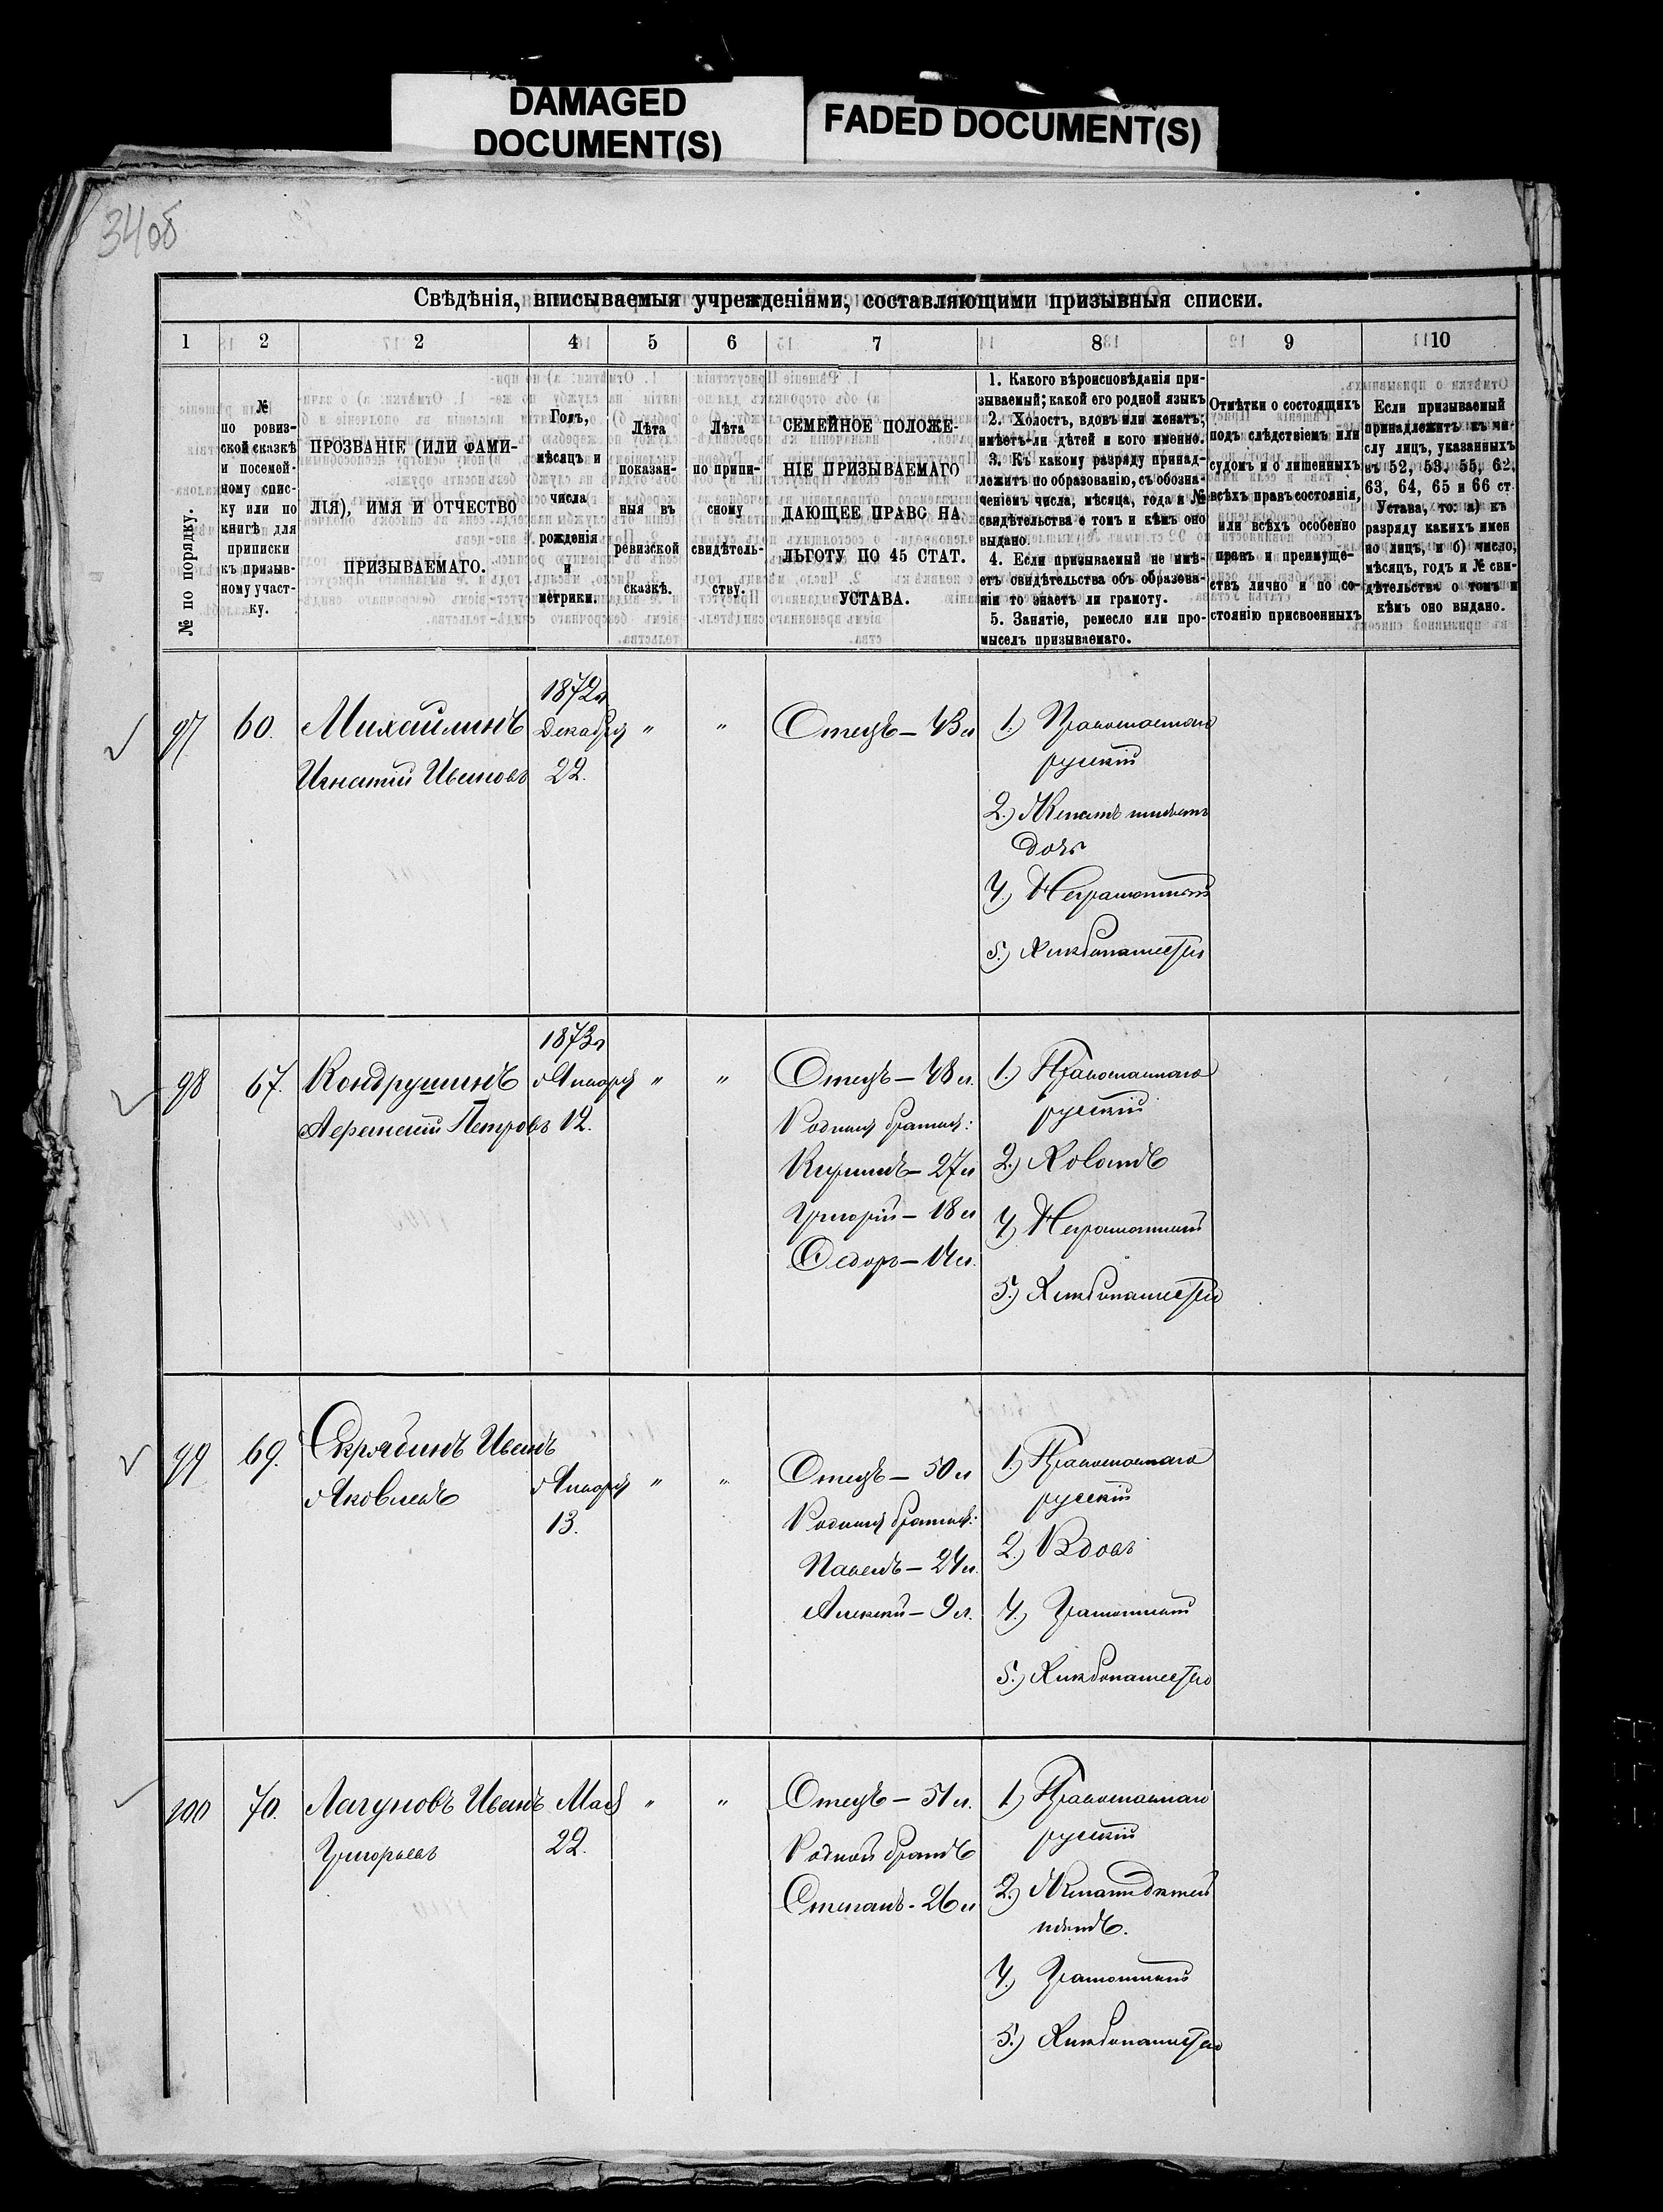 DAMAGED
DOCUMENT(S)
FADED DOCUMENT(S)
34об
Свѣдѣнія, вписываемыя учрежденіями, составляющими призывныя списки.
1 2 2 4 5 6 7 8 9 10
№ по порядку.
№
по ревиз-
ской сказкѣ
и посемей-
ному спис-
ку или по
книгѣ для
приписки
къ призыв-
ному участ-
ку.
ПРОЗВАНІЕ (ИЛИ ФАМИ-
ЛІЯ), ИМЯ И ОТЧЕСТВО
ПРИЗЫВАЕМАГО.
Годъ,
мѣсяцъ и
числа
рожденія
и
метрики.
Лѣта
показан-
ныя въ
ревизской
сказкѣ.
Лѣта
по припи-
сному
свидѣтель-
ству.
СЕМЕЙНОЕ ПОЛОЖЕ-
НІЕ ПРИЗЫВАЕМАГО
ДАЮЩЕЕ ПРАВО НА
ЛЬГОТУ ПО 45 СТАТ.
УСТАВА.
1. Какого вѣроисповѣданія при-
зываемый; какой его родной языкъ
2. Холостъ, вдовъ или женатъ;
имѣетъ-ли дѣтей и кого именно.
3. Къ какому разряду принад-
лежитъ по образованію, съ обозна-
ченіемъ числа, мѣсяца, года и №
свидѣтельства о томъ и кѣмъ оно
выдано.
4. Если призываемый не имѣ-
етъ свидѣтельства объ образова-
ніи то знаетъ ли грамоту.
5. Занятіе, ремесло или про-
мыселъ призываемаго.
Отмѣтки о состоящихъ
подъ слѣдствіемъ или
судомъ и о лишенныхъ
всѣхъ правъ состоянія,
или всѣхъ особенно
правъ и преимуще-
ствъ лично и по со-
стоянію присвоенныхъ
Если призываемый
принадлежитъ къ чи-
слу лицъ, указанныхъ
въ 52, 53, 55, 62,
63, 64, 65 и 66 ст.
Устава, то: а) къ
разряду какихъ имен
но лицъ, и б) число,
мѣсяцъ, годъ и № сви-
дѣтельства о томъ и
кѣмъ оно выдано.
97 60. Михайлинъ
Игнатій Ивановъ
1872 г
Декабря
22.
" "
Отецъ — 43 л
1.) Православнаго
русскій
2.) Женатъ имѣетъ
дочь
4.) Неграмотный
5.) Хлѣбопашество
98 67. Кондрушинъ
Петровъ
1873 г
Января
12.
" "
Отецъ — 48 л.
Родныя братья:
— 27 л
Григорій — 18 л
Федоръ — 14 л.
1.) Православнаго
русскій
2.) Холостъ
4.) Неграмотный
5.) Хлѣбопашество
99 69. Скрябинъ Иванъ
Яковлевъ
Января
13.
" "
Отецъ — 50 л
Родныя братья:
Павелъ — 24 л.
Алексѣй — 9 л.
1.) Православнаго
русскій
2.) Вдовъ
4.) Грамотный
5.) Хлѣбопашество
100 70. Лагуновъ Иванъ
Григорьевъ
Мая
22.
" "
Отецъ — 51 л.
Родной братъ
Степанъ - 26 л
1.) Православнаго
русскій
2.) Женатъ дѣтей
нѣтъ.
4.) Грамотный
5.) Хлѣбопашество